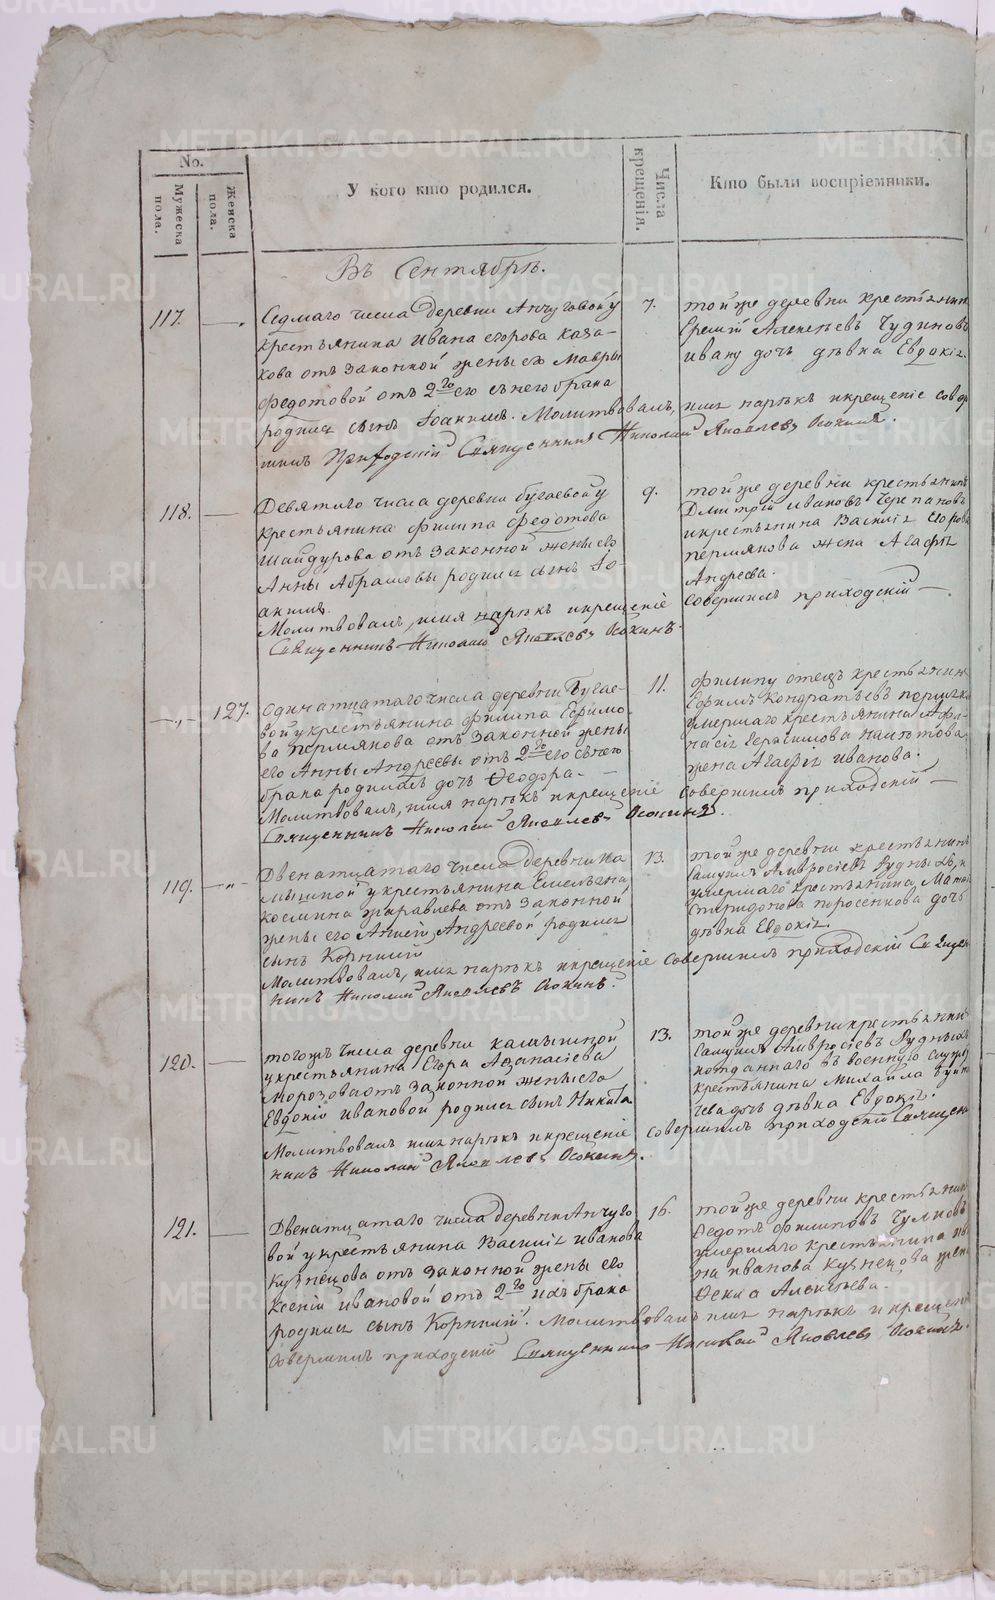 No.
Мужеска пола.
Женска пола.
У кого кто родился.
Числа крещенія.
Кто были воспріемники.
Въ Сентябрѣ.
117.
Седмаго числа деревни Анчуговой у
крестьянина Ивана Егорова Каза-
кова отъ законной жены его Мавры
Федотовой отъ 2го его с нею брака
родился сынъ Іоакимъ. Молитвовалъ, имя нарекъ и крещеніе совер
шилъ Приходскій Священникъ Николай Яковлевъ Осокинъ.
7.
той же деревни крестьянинъ
Ермій Алексѣевъ Чудиновъ
Ивану дочь дѣвка Евдокія.
118.
Девятаго числа деревни Бугаевой у
крестьянина Филипа Федотова
Шайдурова отъ законной жены его
Анны Абрамовы родился сынъ Іо-
акимъ.
Молитвовалъ, имя нарекъ и крещеніе
Священникъ Николай Яковлевъ Осокинъ.
9.
той же деревни крестьянинъ
Дмитрій Ивановъ Черепановъ
и крестьянина Василія Егорова
Пермякова жена Агафія
Андреева.
Совершилъ приходскій —
127.
Одинатцатаго числа деревни Бугае-
вой у крестьянина Филипа Ефимо-
ва Пермякова отъ законной жены
его Анны Андреевы отъ 2го его с нею
брака родилась дочь Феодора. —
Молитвовалъ, имя нарекъ и крещеніе совершилъ приходскій —
Священникъ Николай Яковлевъ Осокинъ.
11.
Филипу отецъ крестьянинъ
Ефимъ Кондратьевъ
умершаго крестьянина Афа-
насія Герасимова
жена Агафія Иванова.
119.
Двенатцатаго числа деревни Ка
мышной у крестьянина Емельяна
Козмина Жаравлева отъ законной
жены его Андреевой родился
сынъ Корнилій
Молитвовалъ, имя нарекъ и крещеніе совершилъ приходскій Священ
никъ Николай Яковлевъ Осокинъ.
13.
той же деревни крестьянинъ
Самуилъ Амвросіевъ Рудныхъ, и
умершаго крестьянина
Спиридонова Поросенкова дочь
дѣвка Евдокія.
120.
тогожъ числа деревни Камышной
у крестьянина Егора Афанасіева
Морозова отъ законной жены его
Евдокіи Ивановой родился сынъ Никита
Молитвовалъ имя нарекъ и крещеніе совершилъ приходскій Священ
никъ Николай Яковлевъ Осокинъ.
13.
той же деревни крестьянинъ
Самуилъ Амвросіевъ Рудныхъ
и отданнаго въ военную службу
крестьянина Михайла
дочь дѣвка Евдокія.
121.
Двенатцатаго числа деревни Анчуго
вой у крестьянина Василія Иванова
Кузнецова отъ законной жены его
Ксеніи Ивановой отъ 2го ихъ брака
родился сынъ Корнилій. Молитвовалъ имя нарекъ и крещеніе
совершилъ приходскій Священникъ Николай Яковлевъ Осокинъ.
16.
той же деревни крестьянинъ
Федотъ Филиповъ
умершаго крестьянина Ив
на Иванова Кузнецова жена
Фекла Алексѣева.
METRIKI.GASO-URAL.RU